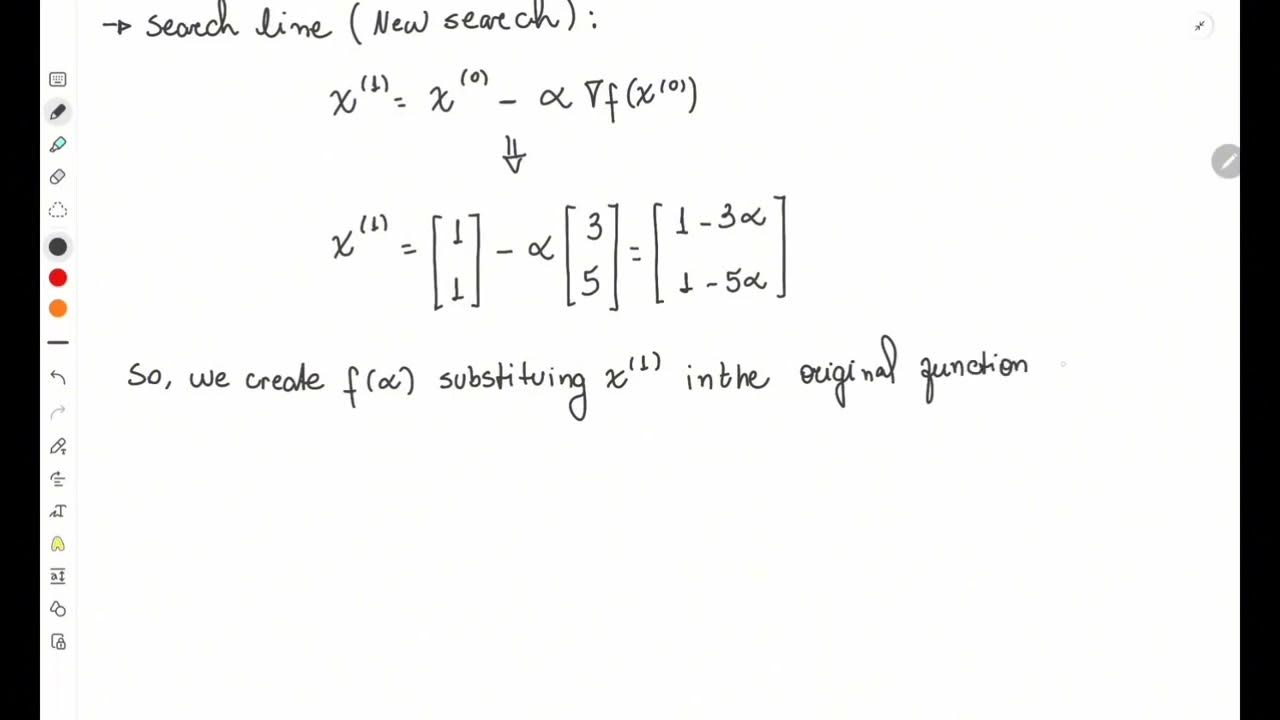 → Search line (New search):
x^(1) = x^(0) - α ∇f(x^(0))
⇓
x^(1) = [1 1] - α [3 5] = [1 - 3α 1 - 5α]
So, we create f(α) substituing x^(1) in the original function